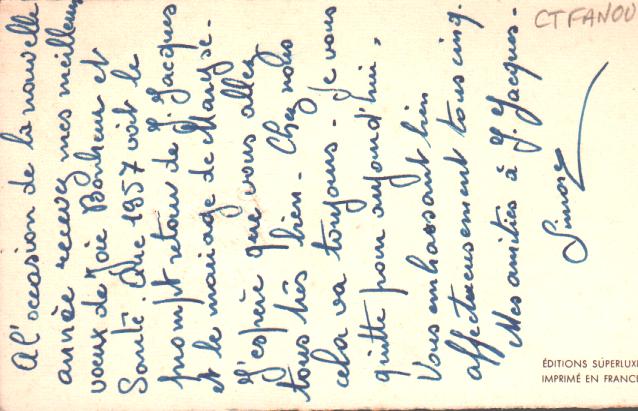 A l'occasion de la nouvelle
année recevez mes meilleurs
voeux de Joie Bonheur et
Santé. Que 1957 voit le
prompt retour de J. Jacques
et le mariage de Maryse.
J'espère que vous allez
tous très bien. Chez nous
cela va toujours. Je vous
quitte pour aujourd'hui,
Vous embrassant bien
affectueusement tous cinq.
Mes amitiés à J. Jacques.
Simone
CTFANOU
ÉDITIONS SUPERLUXE
IMPRIMÉ EN FRANCE